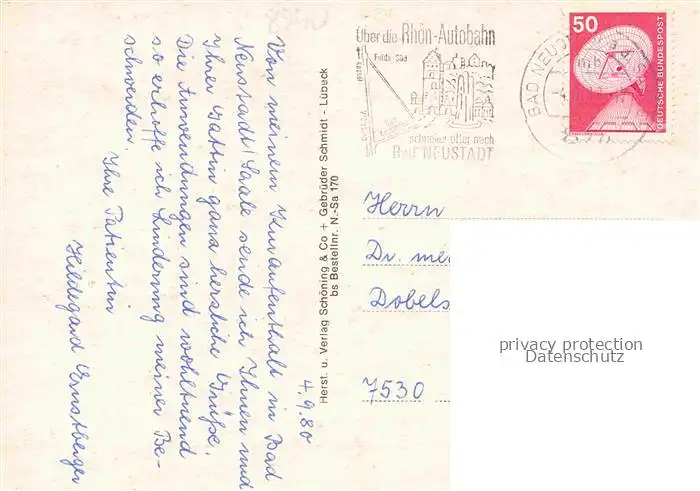 4.9.80
Von meinem Kuraufenthalt in Bad
Neustadt/Saale sende ich Ihnen und
Ihrer Gattin ganz herzliche Grüße.
Die Anwendungen sind wohltuend
so erhoffe ich Linderung meiner Be-
schwerden.
Ihre Patientin
Hildegard Ernstberger
Herst. u. Verlag Schöning & Co + Gebrüder Schmidt - Lübeck
bs Bestellnr. N.-Sa 170
Über die Rhön-Autobahn
Fulda-Süd
schneller öfter nach
BAD NEUSTADT
BAD NEU
50
DEUTSCHE BUNDESPOST
Herrn
Dr. me
Dobels
7530
privacy protection
Datenschutz